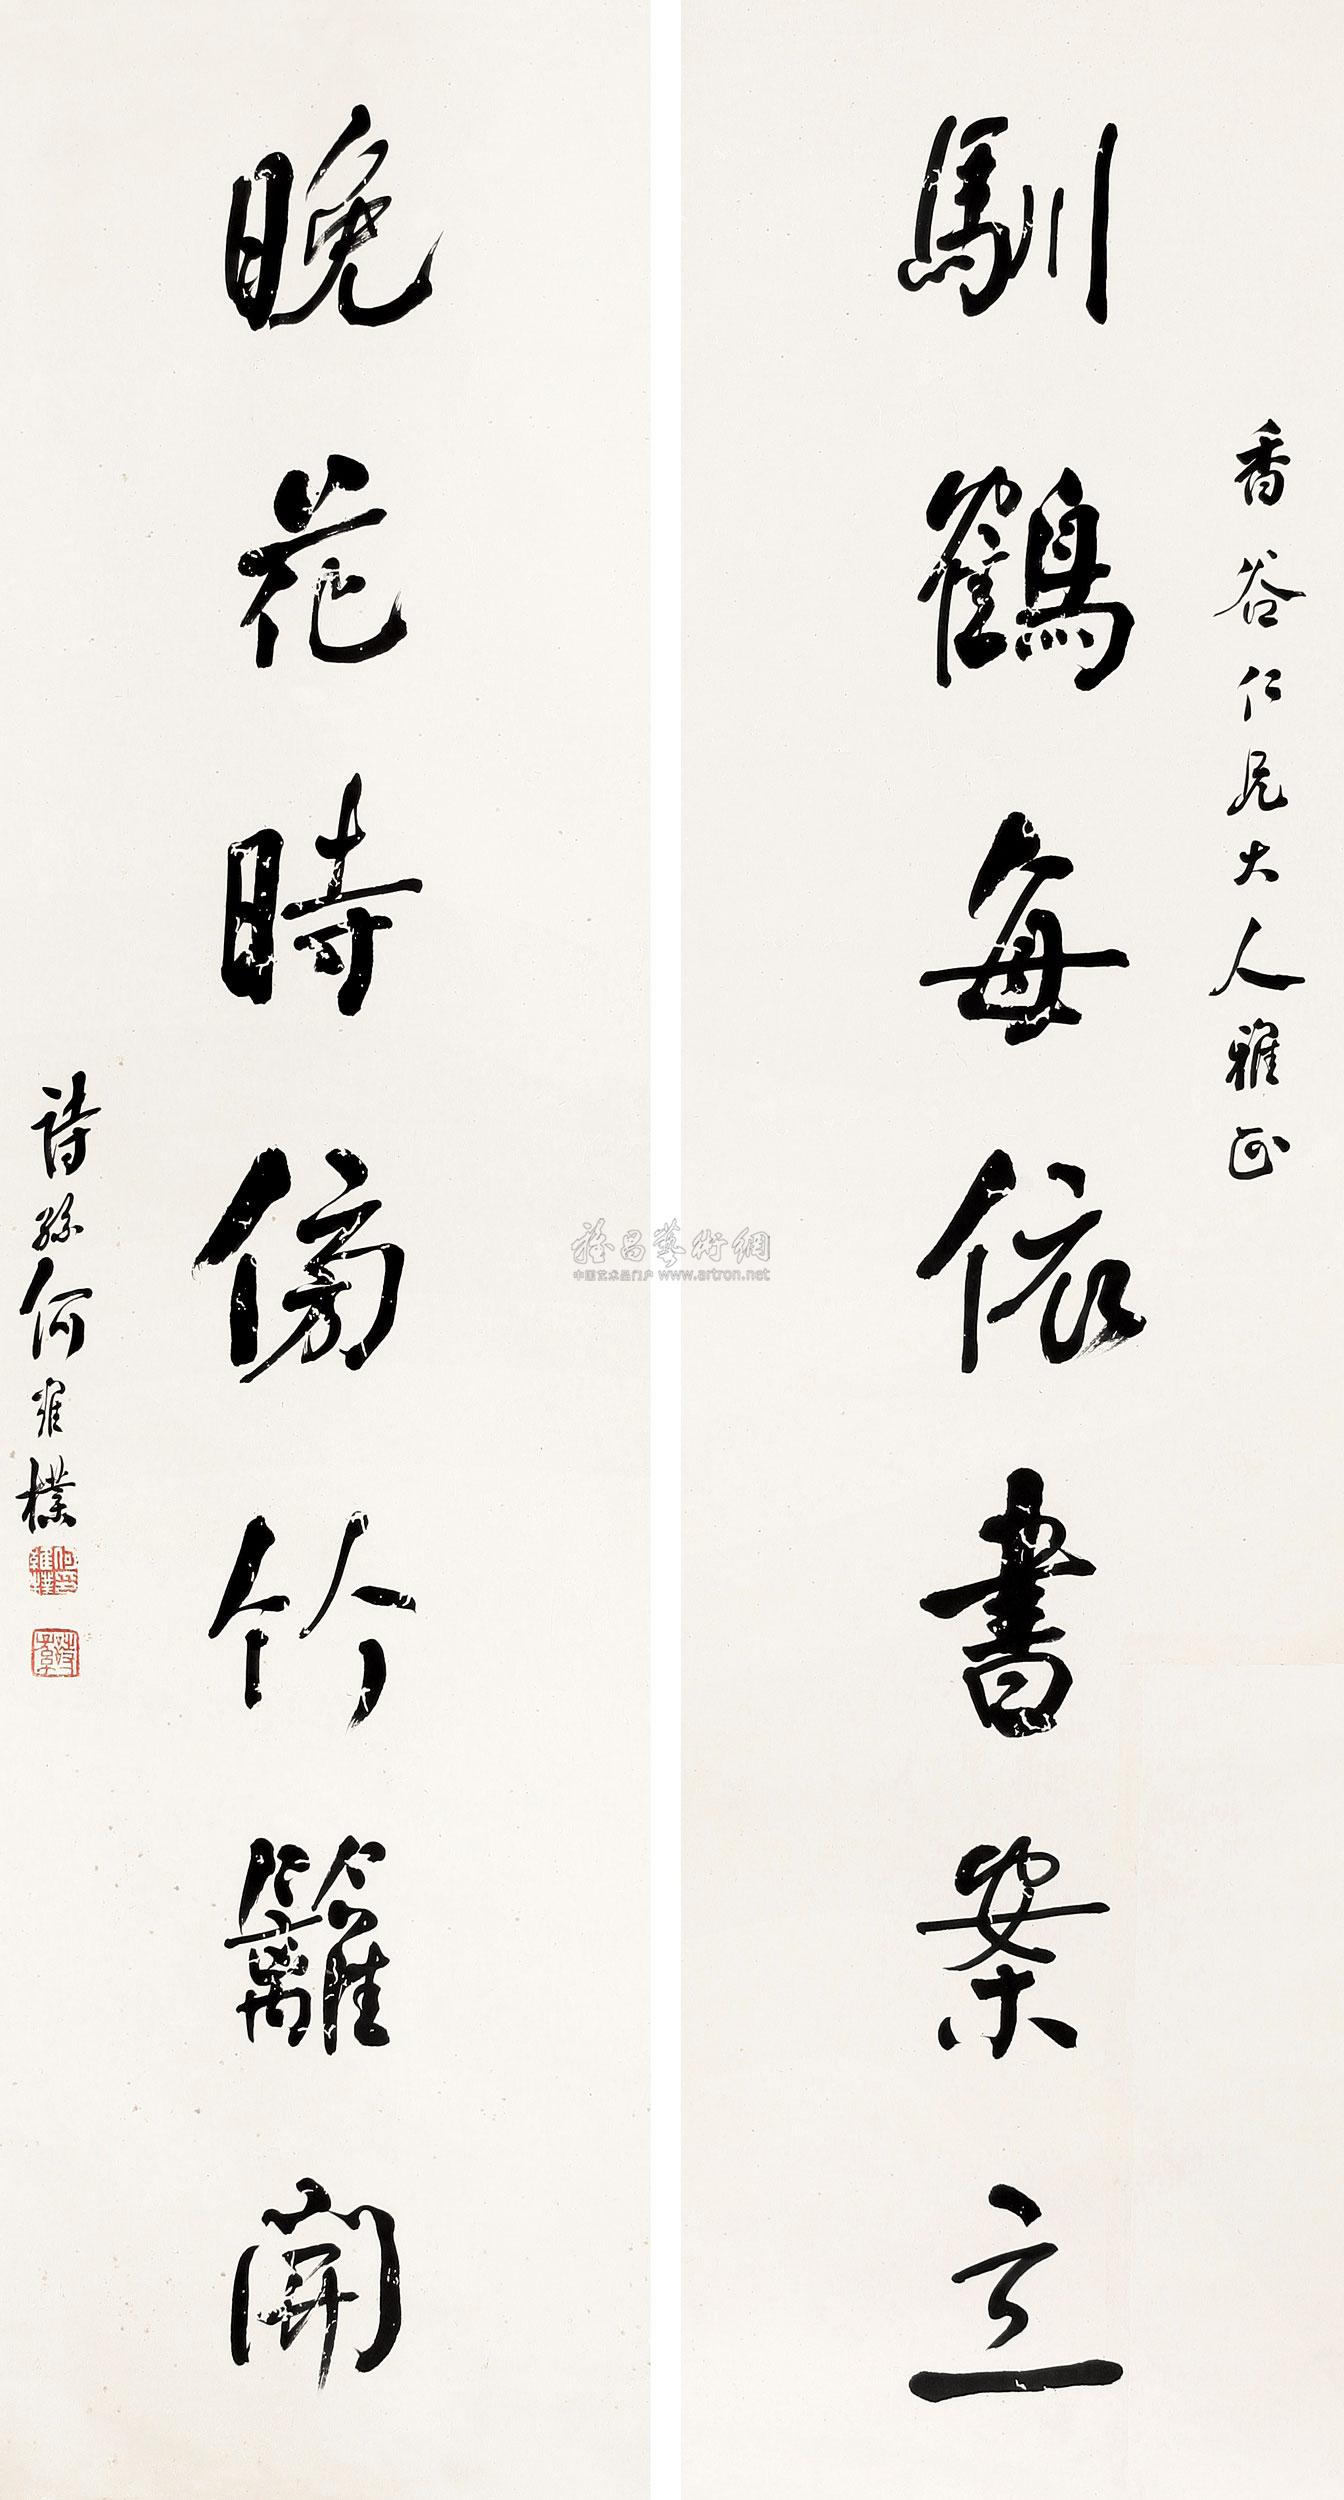 香谷仁兄大人雅正
馴鶴每依書案立
晚花時傍竹籬開
詩孫何維樸
雅昌藝術網
中国艺术品门户 www.artron.net